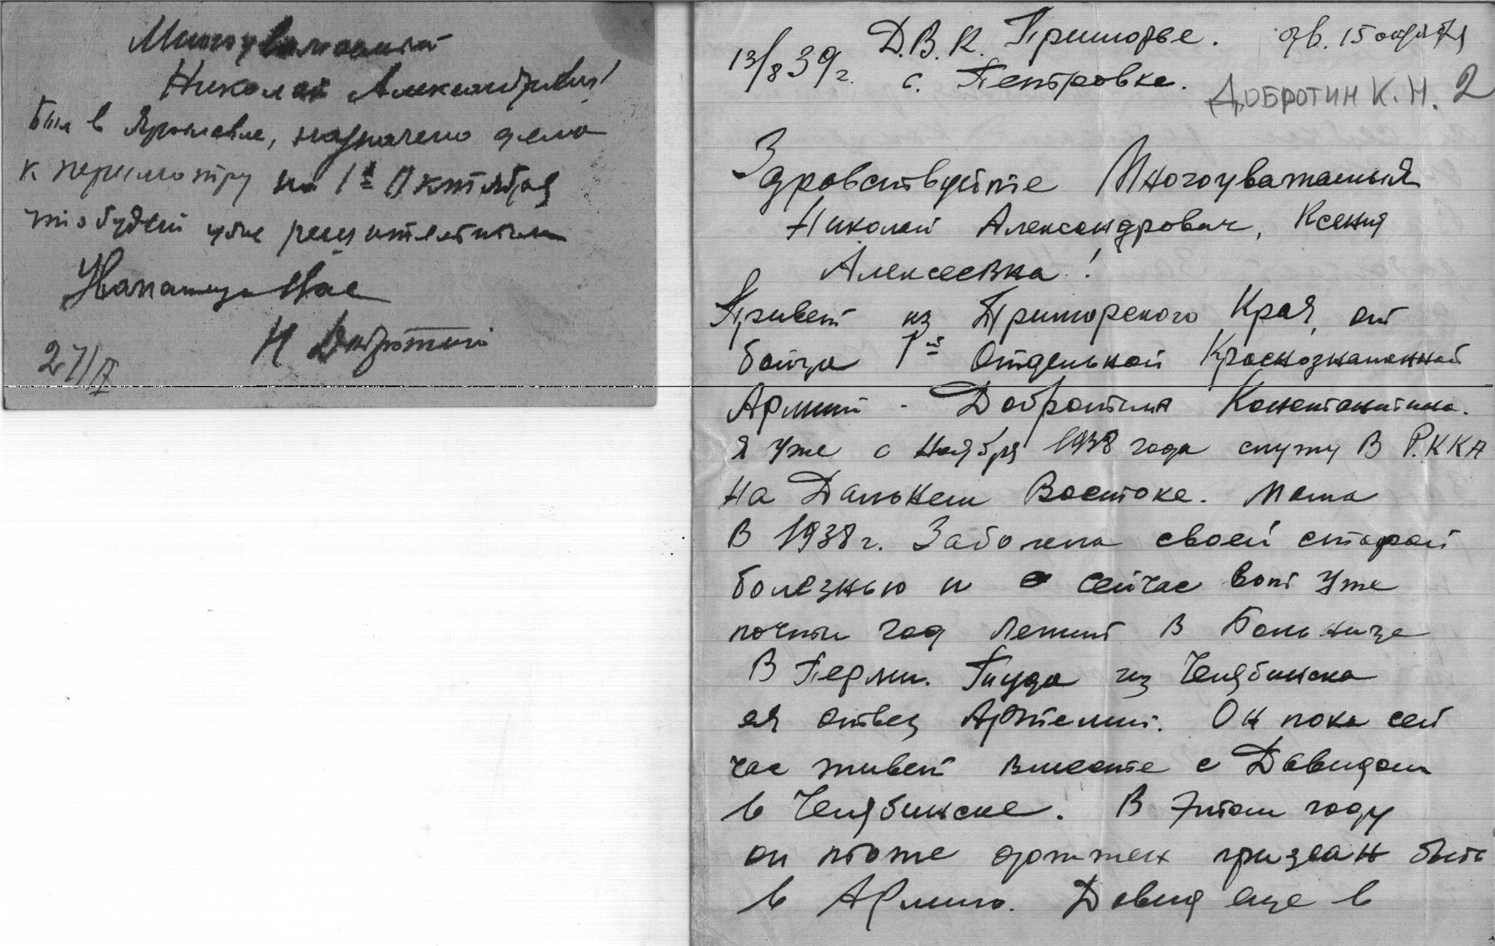 Многоуважаемый
Николай Александрович!
Был в Ярославле, назначено дело
к пересмотру на 1е Октября
это будет уже решительным
Уважающий Вас
Н Добротин
27/
13/8 39 г. Д.В.К. Приморье. отв. 15 октября
с. Петровка.
Добротин К.Н. 2
Здравствуйте Многоуважаемыя
Николай Александрович, Ксения
Алексеевна!
Привет из Приморского Края, от
бойца 1ой Отдельной Краснознаменной
Армии - Добротина Константина.
Я уже с ноября 1938 года служу в Р.К.К.А
на Дальнем Востоке. Мама
В 1938 г. Заболела своей старой
болезнью и сейчас вот уже
почти год лежит в Больнице
В Перми. Туда из Челябинска
ея отвез Артемий. Он пока сей
час живет вместе с Давидом
в Челябинске. В Этом году
он тоже должен призван быть
в Армию. Давид еще в